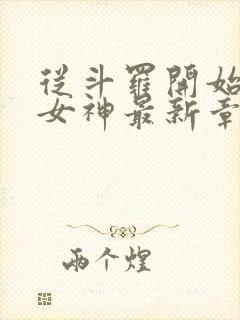 從斗羅開始
女神最新章
兩个煌